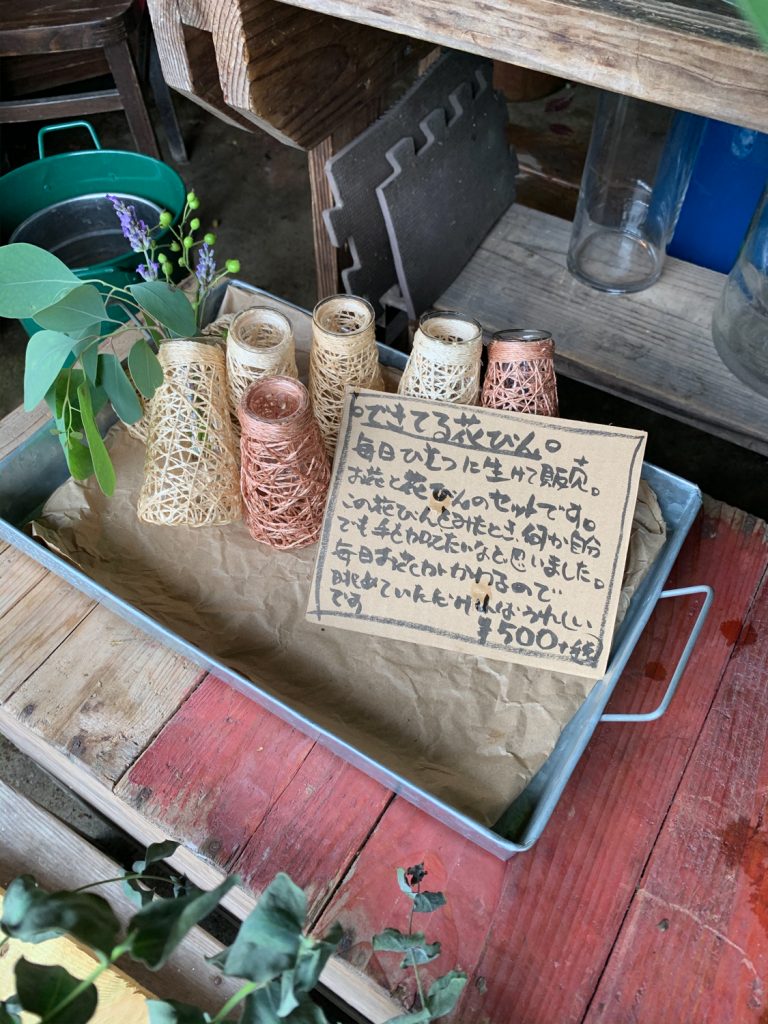 。できてる花びん。
毎日ひとつに生けて販売。
お花と花びんのセットです。
この花びんをみたとき、何か自分
でも手を加えたいなと思いました。
毎日お花がかわるので
眺めていただければうれしい
です ¥500+税